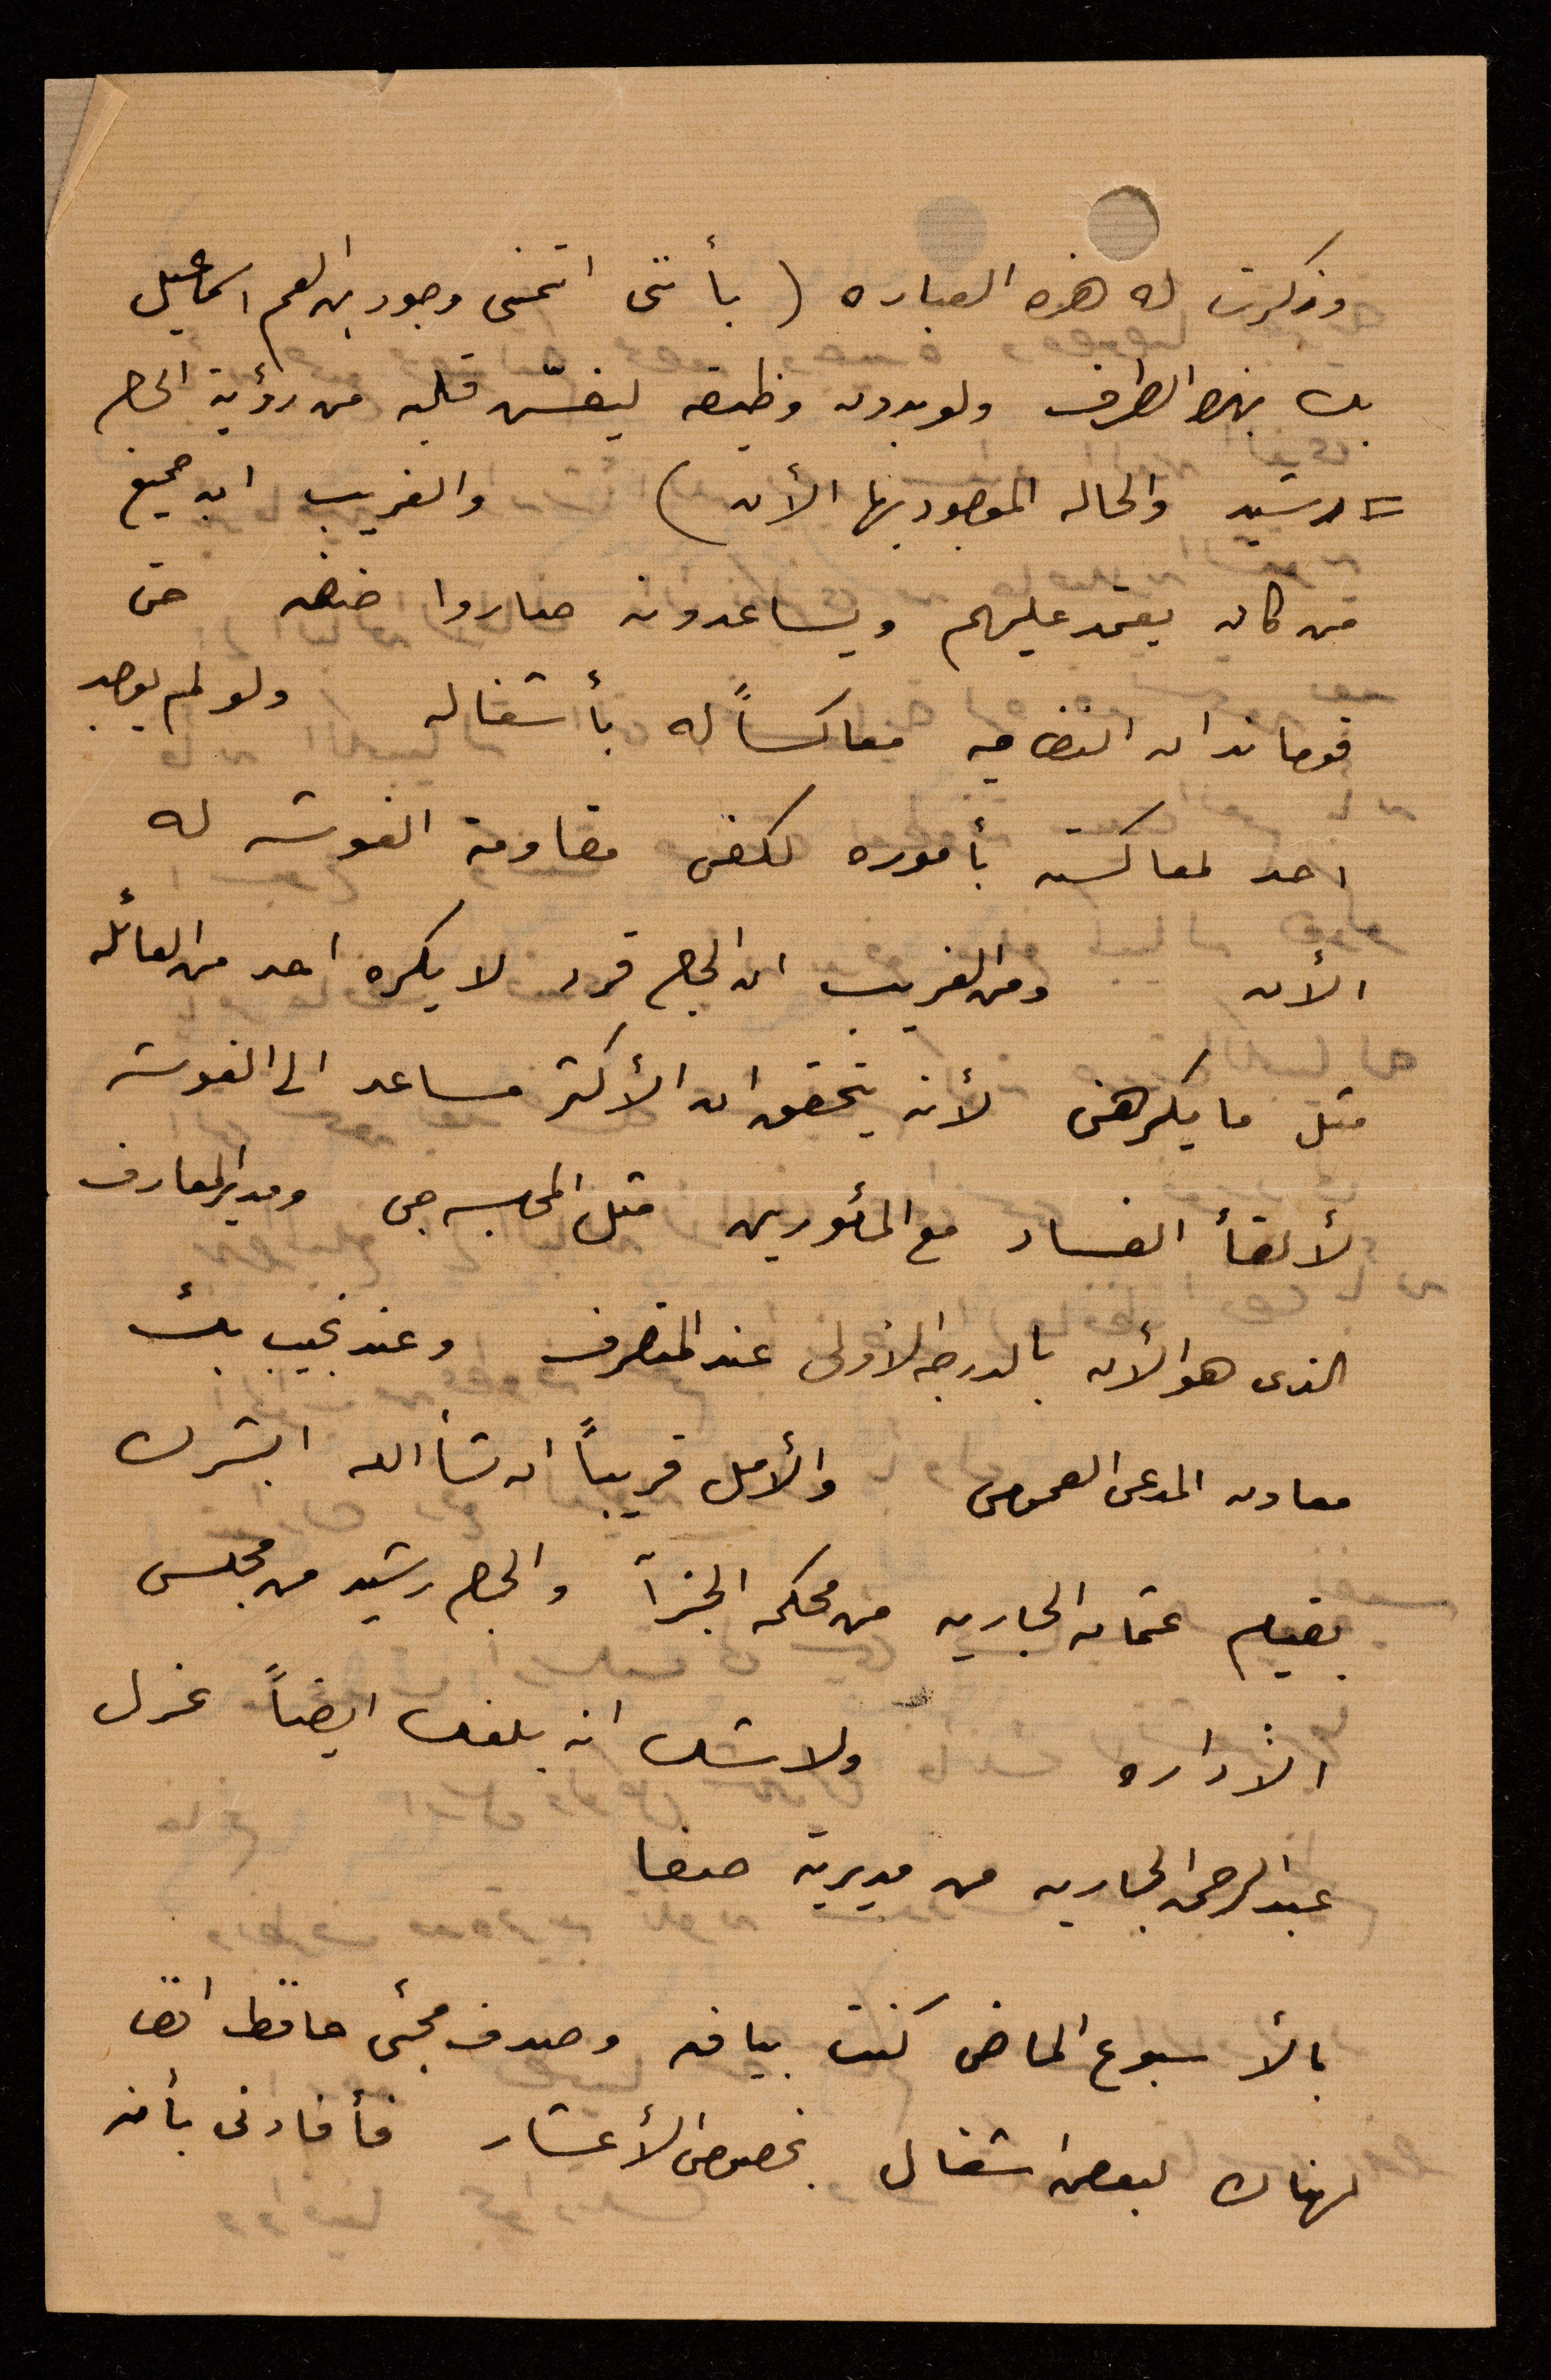 وذكرت له هذه العباره ( بأنني اتمنى وجود ابن العم اسماعيل
بك بهذا الطرف ولو بدون وظيفه ليفش قلبه من رؤية الحاج
= رشيد والحاله الموجود بها الأن ) والغريب ان جميع
من كان يعتمد عليهم ويساعدونه صاروا ضده حتى
قوماندان النظاميه معاكساً له بأشغاله ولو لم يوجد
احد لمعاكسته بأموره لكفى مقاومة الغوشه له
الأن ومن الغريب ان الحاج قرد لا يكره احد من العائله
مثل ما يكرهني لأنه يتحقق ان الأكثر مساعد الى الغوشه
لألقأ الفساد مع المأمورين مثل المحاسبه جي ومدير المعارف
الذي هو الأن بالدرجه الأولى عند المتصرف وعند نجيب بك
معاون المدعي العمومي والأمل قريباً ان شأ الله ابشرك
بقيام عثمان الجاريه من محكمة الجزآ والحاج رشيد من مجلس
الأداره ولا شك انه بلغك ايضاً عزل
عبد الرحمن الجاريه من مديرية صفا
بالأسبوع الماضي كنت بيافه وصدف مجئ حافظ
لهناك لبعض اشغال بخصوص الأعشار فأفادني بأنه